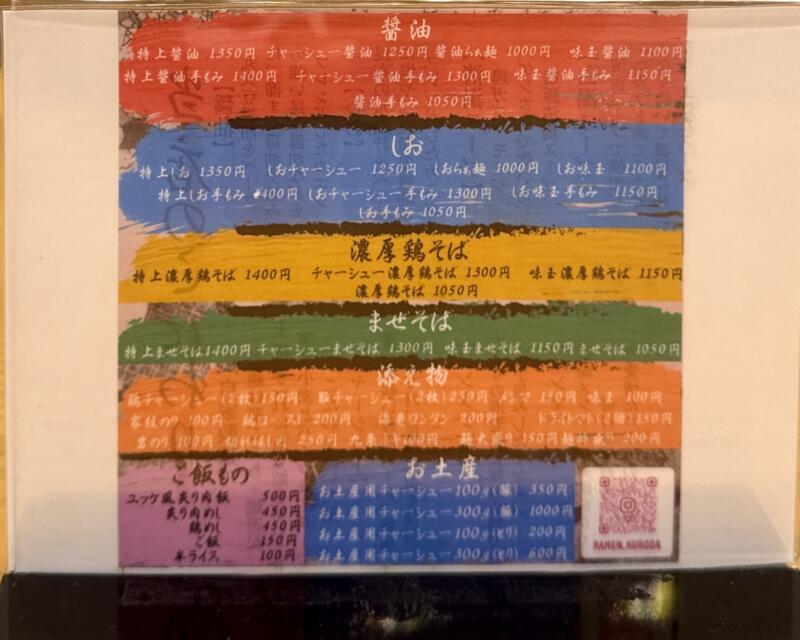 醤油
特上醤油 1350円 チャーシュー醤油 1250円 醤油らぁ麺 1000円 味玉醤油 1100円
特上醤油手もみ 1400円 チャーシュー醤油手もみ 1300円 味玉醤油手もみ 1150円
醤油手もみ 1050円
しお
特上しお 1350円 しおチャーシュー 1250円 しおらぁ麺 1000円 しお味玉 1100円
特上しお手もみ 400円 しおチャーシュー手もみ 1300円 しお味玉手もみ 1150円
しお手もみ 1050円
濃厚鶏そば
特上濃厚鶏そば 1400円 チャーシュー濃厚鶏そば 1300円 味玉濃厚鶏そば 1150円
濃厚鶏そば 1050円
まぜそば
特上まぜそば1400円 チャーシューまぜそば 1300円 味玉まぜそば 1150円 まぜそば 1050円
添え物
鶏チャーシュー(2枚)150円 豚チャーシュー(2枚)250円 メンマ 150円 味玉 100円
家紋のり 100円 200円 海老ワンタン 200円 ドライトマト(2個)150円
岩のり 100円 250円 九条ネギ100円 麺大盛り 150円 200円
ご飯もの
ユッケ風炙り肉飯 500円
炙り肉めし 450円
鶏めし 450円
ご飯 150円
半ライス 100円
お土産
お土産用チャーシュー100g(豚) 350円
お土産用チャーシュー300g(豚) 1000円
お土産用チャーシュー100g(とり) 200円
お土産用チャーシュー300g(とり) 600円
RAMEN_KURODA